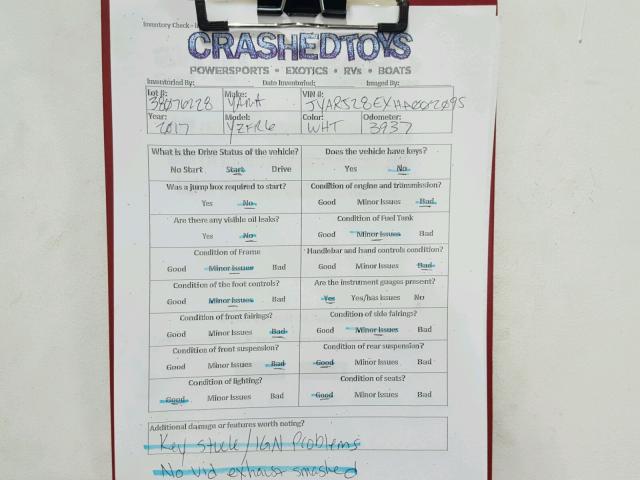 Inventory Check -
CRASHEDTOYS
POWERSPORTS • EXOTICS • RVs • BOATS
Inventoried By: Date Inventoried: Imaged By:
Lot #: Make: VIN #:
38076228 YAMA
Year: Model: Color: Odometer:
2017 YZFR6 WHT 3937
What is the Drive Status of the vehicle? Does the vehicle have keys?
No Start Start Drive Yes No
Was a jump box required to start? Condition of engine and transmission?
Yes No Good Minor Issues Bad
Are there any visible oil leaks? Condition of Fuel Tank
Yes No Good Minor Issues Bad
Condition of Frame Handlebar and hand controls condition?
Good Minor Issues Bad Good Minor Issues Bad
Condition of the foot controls? Are the instrument guages present?
Good Minor Issues Bad Yes Yes/has issues No
Condition of front fairings? Condition of side fairings?
Good Minor Issues Bad Good Minor Issues Bad
Condition of front suspension? Condition of rear suspension?
Good Minor Issues Bad Good Minor Issues Bad
Condition of lighting? Condition of seats?
Good Minor Issues Bad Good Minor Issues Bad
Additional damage or features worth noting?
Key stuck/IGN Problems
No vid exhaust smashed